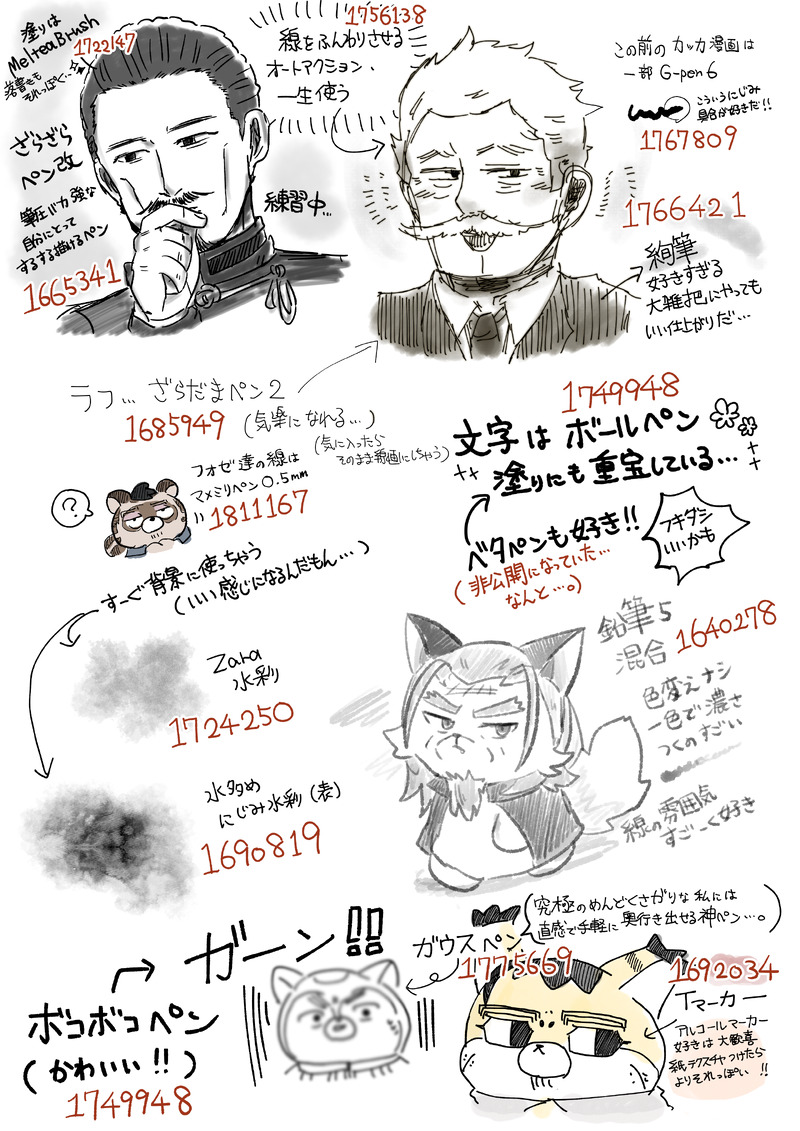 塗りは
MelteaBrush
1722147
落書きも
それっぽく…
ざらざら
ペン改
筆圧バカ強な
自分にとって
するする描けるペン
1665341
練習中…
1756138
線をふんわりさせる
オートアクション、
一生使う
この前のカッカ漫画は
一部 G-pen6
こういうにじみ
具合が好きだ!!
1767809
1766421
絢筆
好きすぎる
大雑把にやっても
いい仕上がりだ…
ラフ…ざらだまペン2
1685949
(気楽になれる…)
(気に入ったら
そのまま線画にしちゃう)
1749948
文字はボールペン
塗りにも重宝している…
ベタペンも好き!!
(非公開になっていた…
なんと…。)
フキダシ
いいかも
フォゼ達の線は
マメミリペン0.5mm
1811167
?
すーぐ背景に使っちゃう
(いい感じになるんだもん…)
Zara
水彩
1724250
水多め
にじみ水彩(表)
1690819
鉛筆5
混合
1640278
色変えナシ
一色で濃さ
つくのすごい
線の雰囲気
すごーく好き
ガーン!!
ボコボコペン
(かわいい!!)
1749948
ガウスペン
1775669
究極のめんどくさがりな私には
直感で手軽に奥行き出せる神ペン…。
1692034
Tマーカー
アルコールマーカー
好きは大歓喜
紙テクスチャつけたら
よりそれっぽい!!